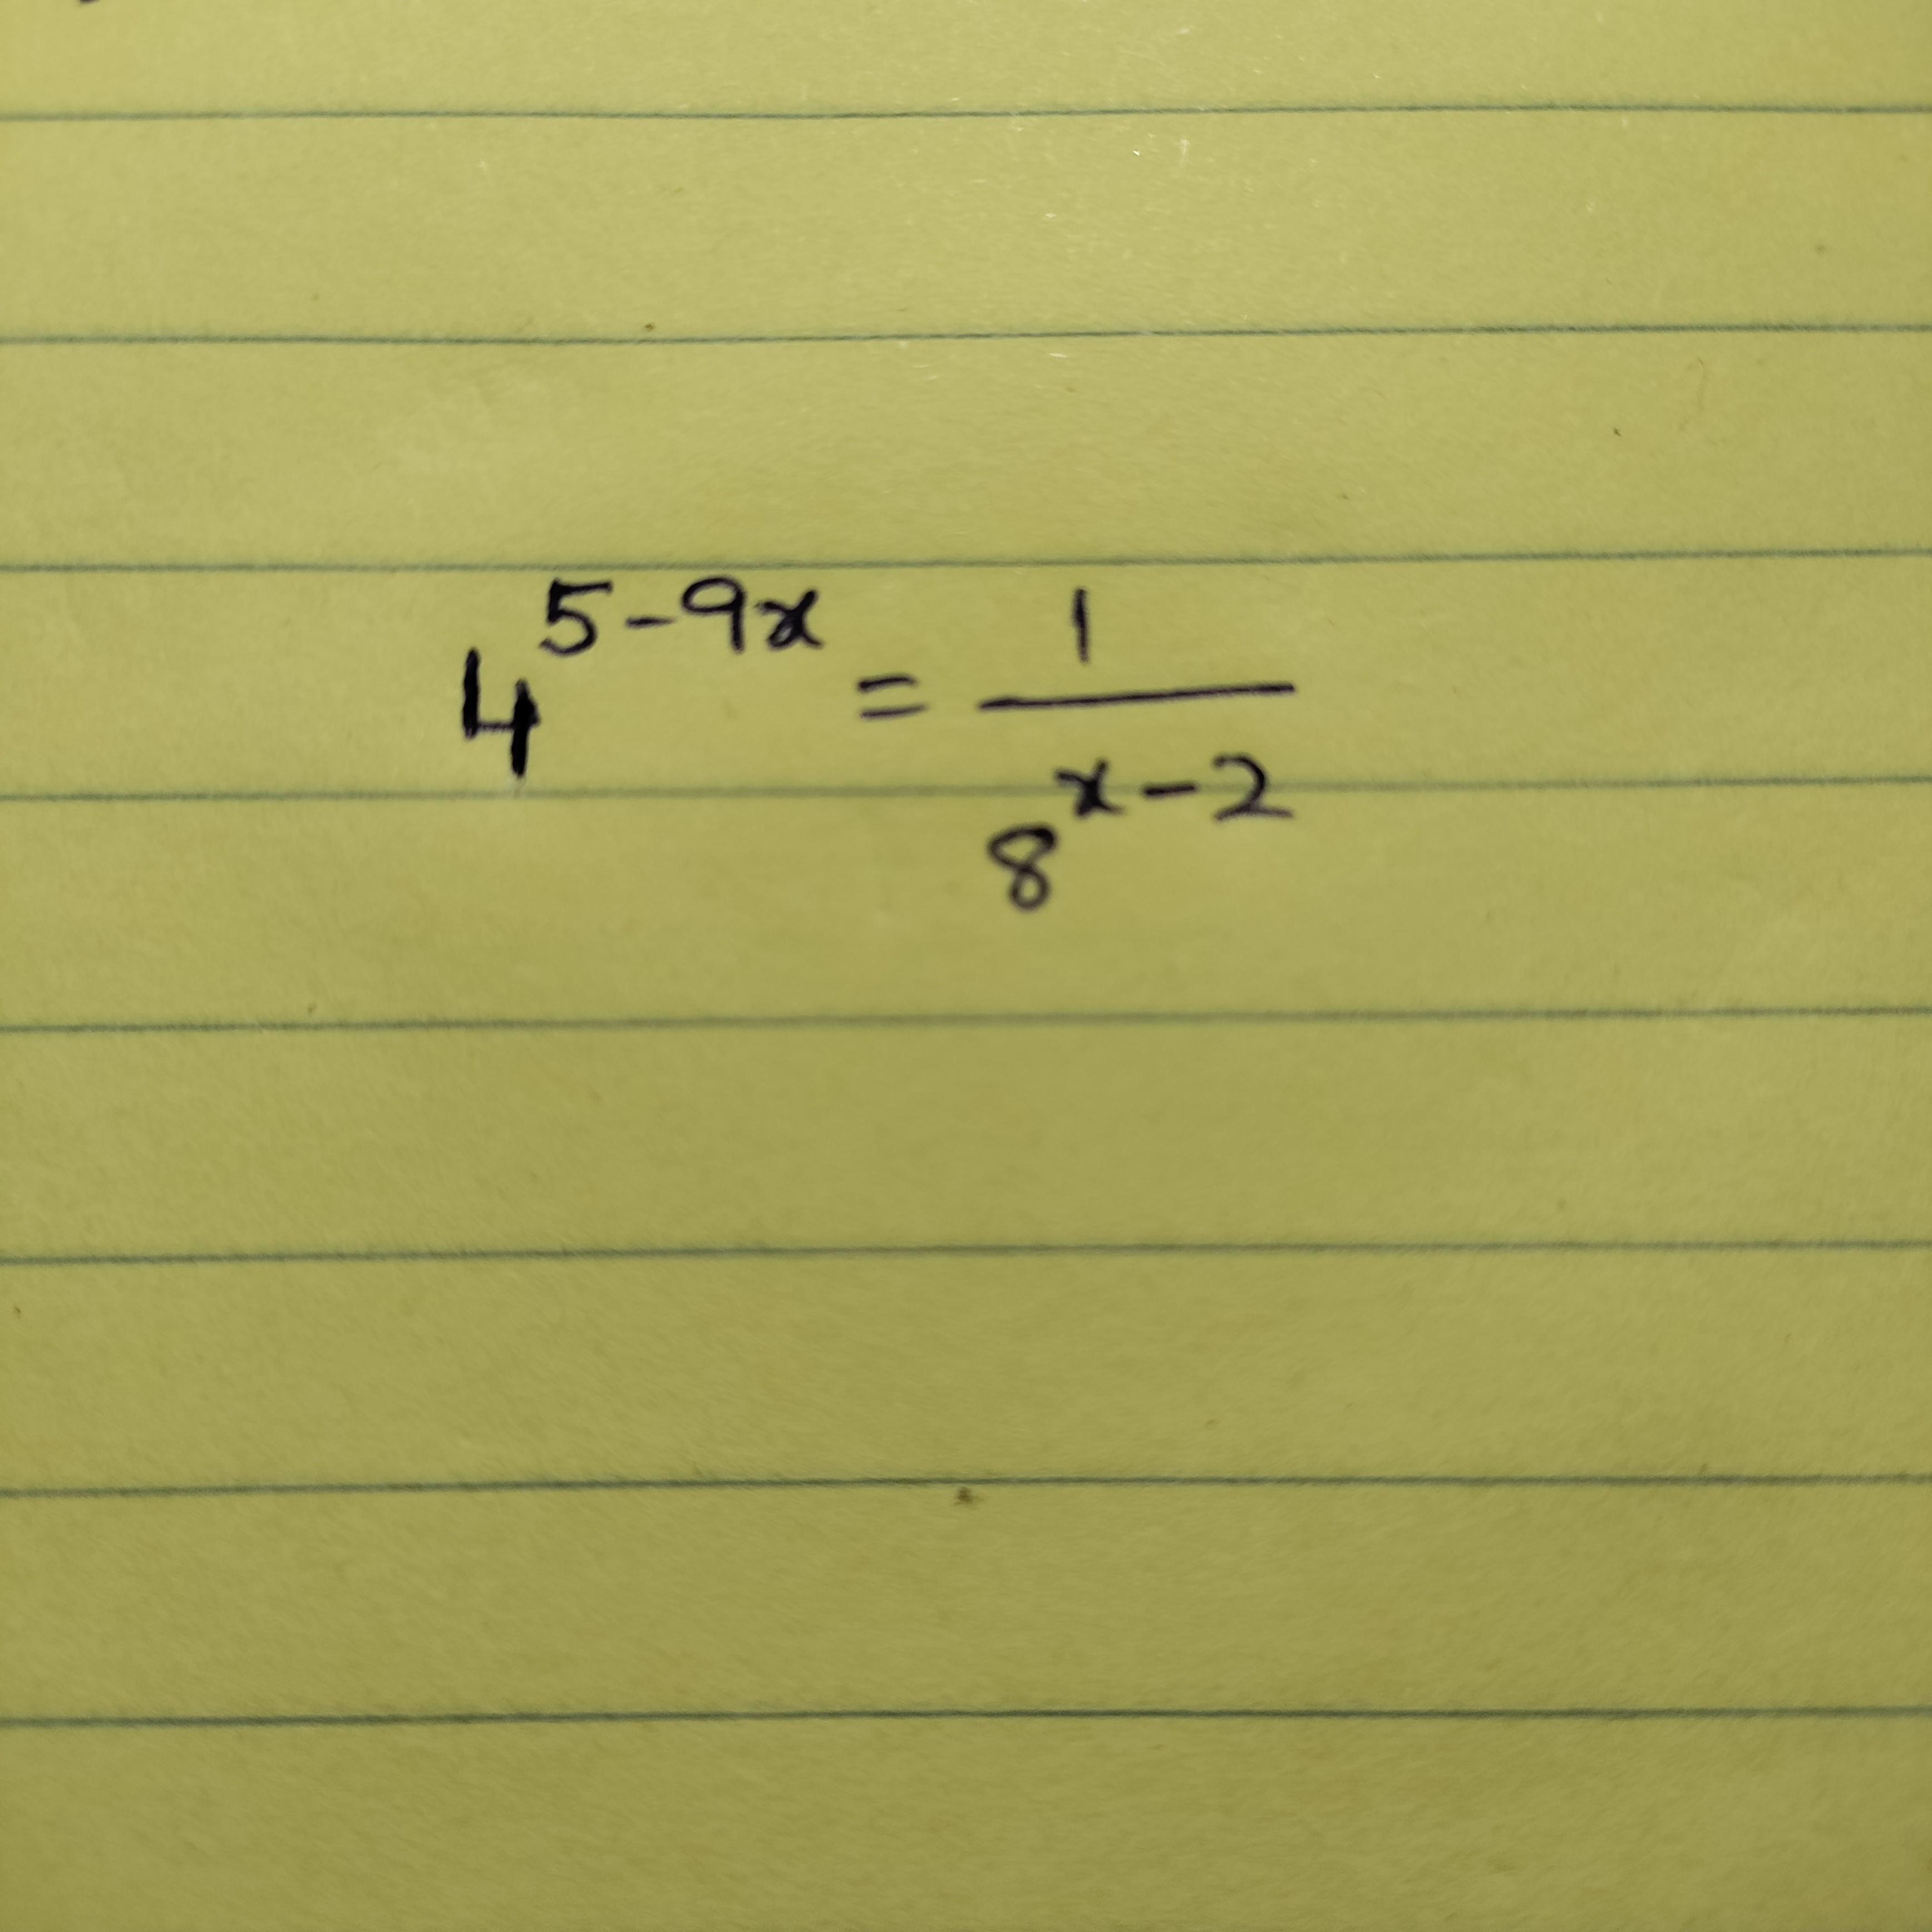 4^{5-9x} = \frac{1}{8^{x-2}}